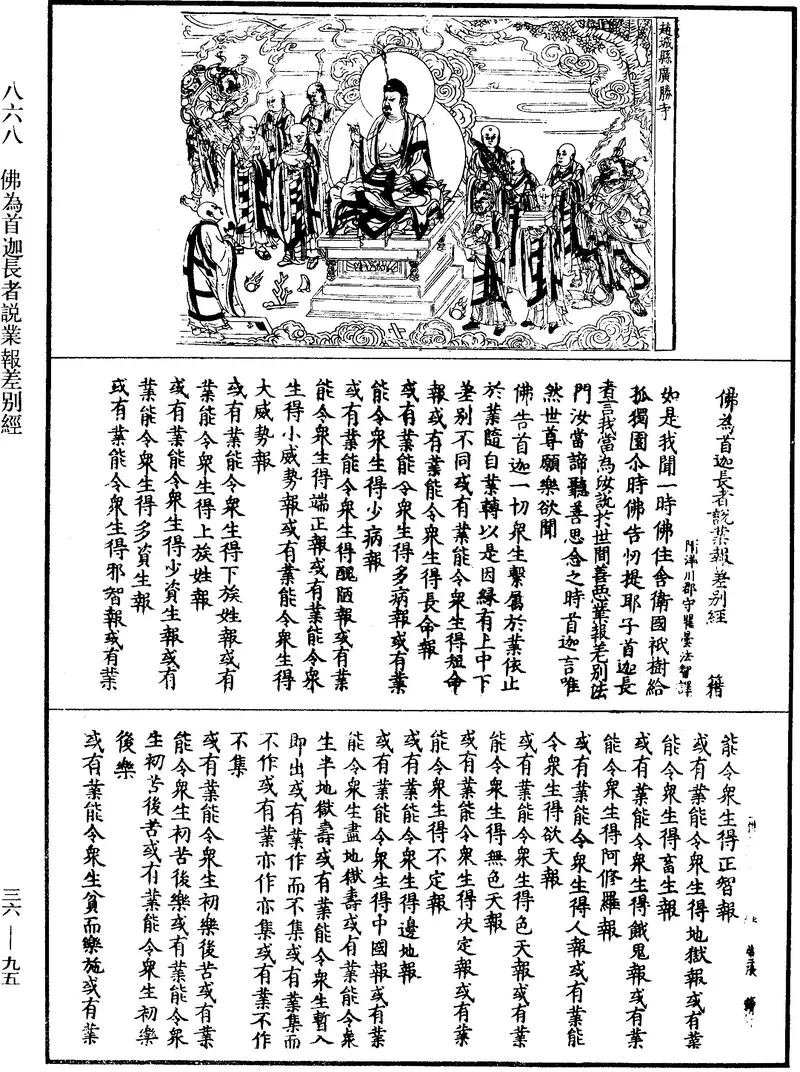 趙城縣廣勝寺
佛為首迦長者說業報差別經　籍
隋洋川郡守瞿曇法智譯
如是我聞一時佛住舍衛國祇樹給
孤獨園尒時佛告忉提耶子首迦長
者言我當為汝說於世間善惡業報差別法
門汝當諦聽善思念之時首迦言唯
然世尊願樂欲聞
佛告首迦一切衆生繫屬於業依止
於業隨自業轉以是因緣有上中下
差別不同或有業能令衆生得短命
報或有業能令衆生得長命報
或有業能令衆生得多病報或有業
能令衆生得少病報
或有業能令衆生得醜陋報或有業
能令衆生得端正報或有業能令衆
生得小威勢報或有業能令衆生得
大威勢報
或有業能令衆生得下族姓報或有
業能令衆生得上族姓報
或有業能令衆生得少資生報或有
業能令衆生得多資生報
或有業能令衆生得邪智報或有業
能令衆生得正智報
或有業能令衆生得地獄報或有業
能令衆生得畜生報
或有業能令衆生得餓鬼報或有業
能令衆生得阿修羅報
或有業能令衆生得人報或有業能
令衆生得欲天報
或有業能令衆生得色天報或有業
能令衆生得無色天報
或有業能令衆生得决定報或有業
能令衆生得不定報
或有業能令衆生得邊地報
或有業能令衆生得中國報或有業
能令衆生盡地獄壽或有業能令衆
生半地獄壽或有業能令衆生暫入
即出或有業作而不集或有業集而
不作或有業亦作亦集或有業不作
不集
或有業能令衆生初樂後苦或有業
能令衆生初苦後樂或有業能令衆
生初苦後苦或有業能令衆生初樂
後樂
或有業能令衆生貧而樂施或有業
八六八　佛為首迦長者説業報差别經
三六——九五